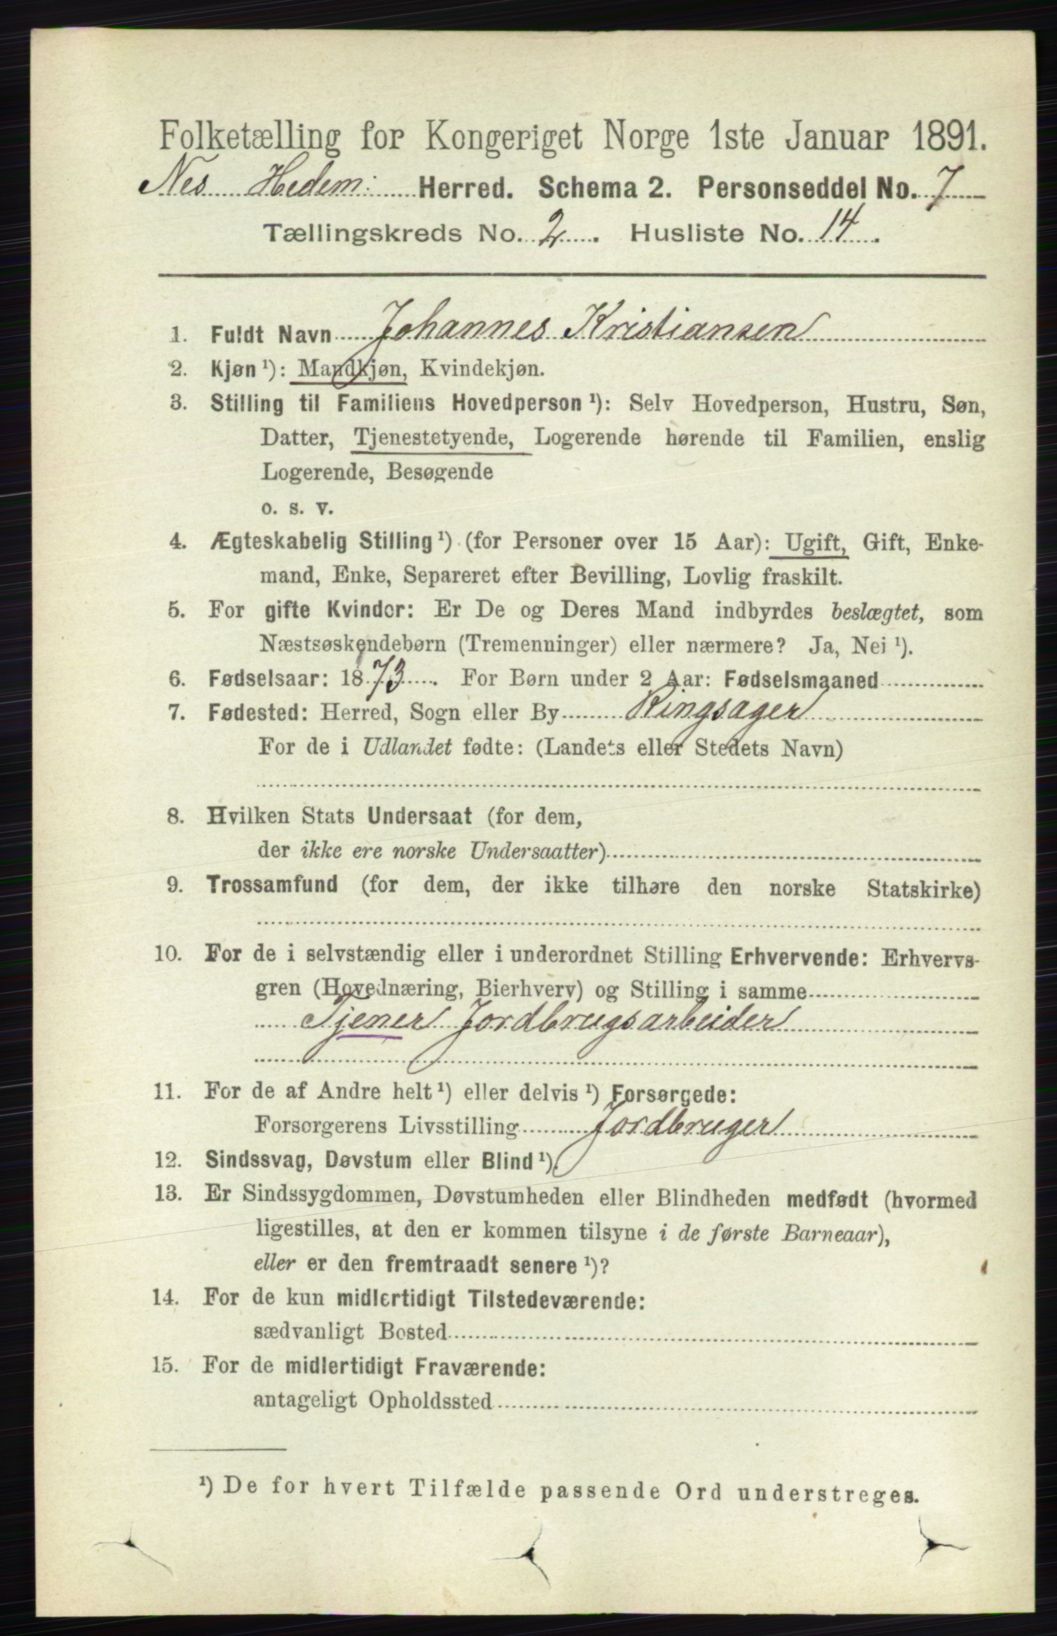 Folketælling for Kongeriget Norge 1ste Januar 1891.
Nes Hedem: Herred. Schema 2. Personseddel No. 7
Tællingskreds No. 2. Husliste No. 14.
1. Fuldt Navn Johannes Kristiansen
2. Kjøn ¹): Mandkjøn, Kvindekjøn.
3. Stilling til Familiens Hovedperson ¹): Selv Hovedperson, Hustru, Søn,
Datter, Tjenestetyende, Logerende hørende til Familien, enslig
Logerende, Besøgende
o. s. v.
4. Ægteskabelig Stilling ¹) (for Personer over 15 Aar): Ugift, Gift, Enke-
mand, Enke, Separeret efter Bevilling, Lovlig fraskilt.
5. For gifte Kvinder: Er De og Deres Mand indbyrdes beslægtet, som
Næstsøskendebørn (Tremenninger) eller nærmere? Ja, Nei ¹).
6. Fødselsaar: 1873. For Børn under 2 Aar: Fødselsmaaned
7. Fødested: Herred, Sogn eller By Ringsager
For de i Udlandet fødte: (Landets eller Stedets Navn)
8. Hvilken Stats Undersaat (for dem,
der ikke ere norske Undersaatter)
9. Trossamfund (for dem, der ikke tilhøre den norske Statskirke)
10. For de i selvstændig eller i underordnet Stilling Erhvervende: Erhvervs-
gren (Hovednæring, Bierhverv) og Stilling i samme
Tjener Jordbrugsarbeider
11. For de af Andre helt ¹) eller delvis ¹) Forsørgede:
Forsørgerens Livsstilling Jordbruger
12. Sindssvag, Døvstum eller Blind ¹).
13. Er Sindssygdommen, Døvstumheden eller Blindheden medfødt (hvormed
ligestilles, at den er kommen tilsyne i de første Barneaar),
eller er den fremtraadt senere ¹)?
14. For de kun midlertidigt Tilstedeværende:
sædvanligt Bosted
15. For de midlertidigt Fraværende:
antageligt Opholdssted
¹) De for hvert Tilfælde passende Ord understreges.